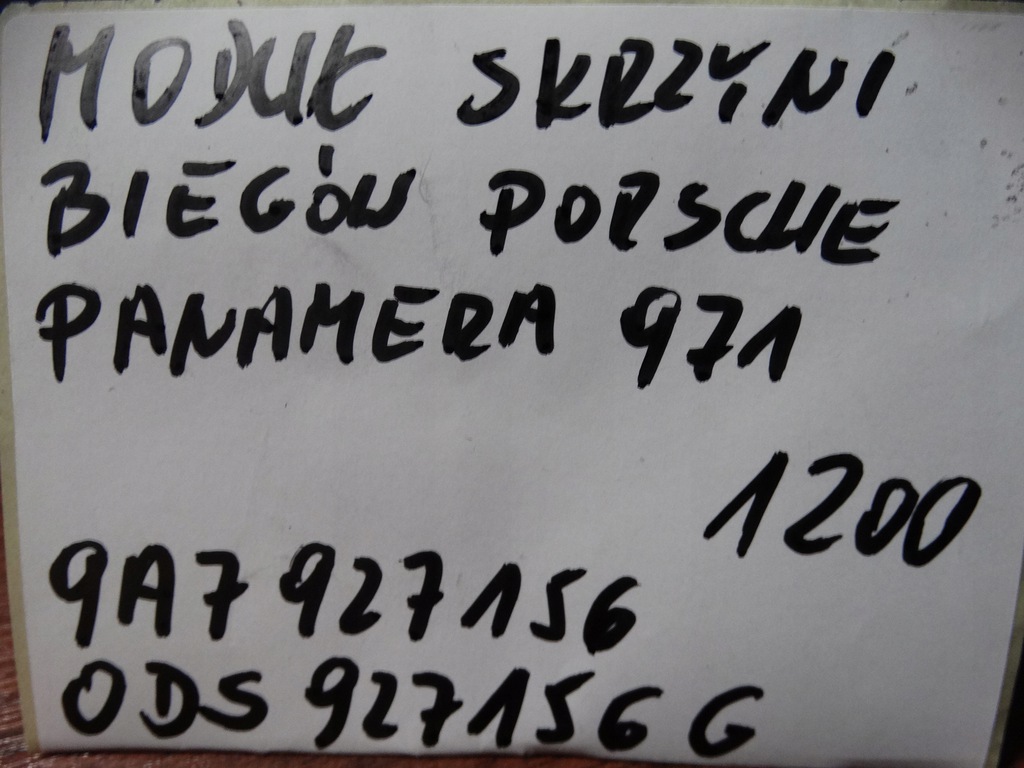 MODUŁ SKRZYNI
BIEGÓW PORSCHE
PANAMERA 971
1200
9A7 927156
ODS 927156 G